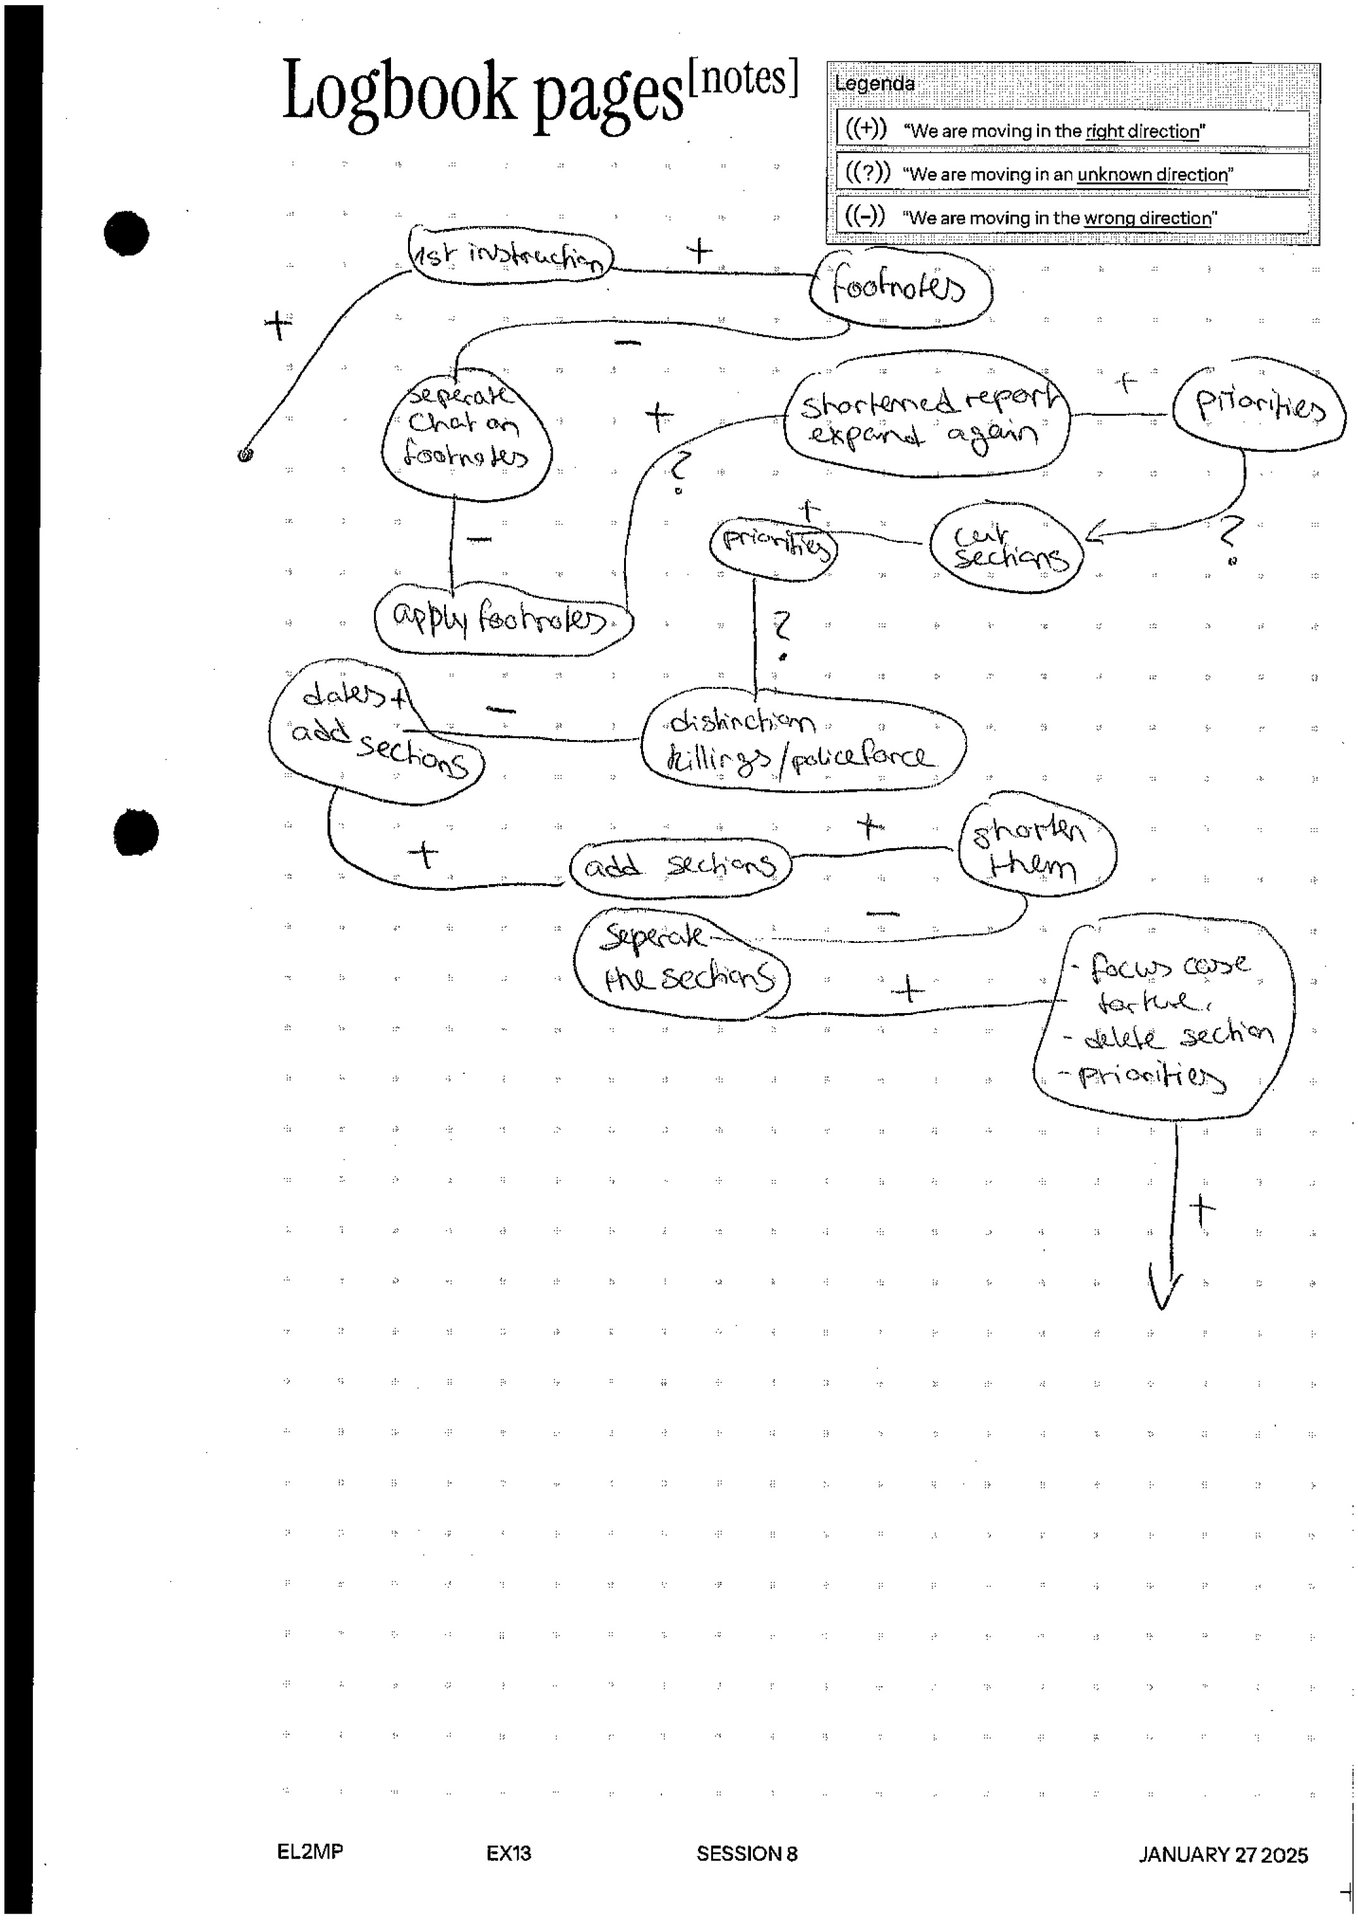 Logbook pages[notes]
Legenda
((+)) "We are moving in the right direction"
((?)) "We are moving in an unknown direction"
((-)) "We are moving in the wrong direction"
1st instruction
+
footnotes
+
-
seperate
chat on
footnotes
+
?
shortened report
expand again
+
priorities
-
?
cut
sections
+
priorities
apply footnotes
?
dates +
add sections
-
distinction
killings/policeforce
+
add sections
+
shorten
them
-
seperate
the sections
+
- focus case
torture.
- delete section
- priorities
+
EL2MP EX13 SESSION 8 JANUARY 27 2025